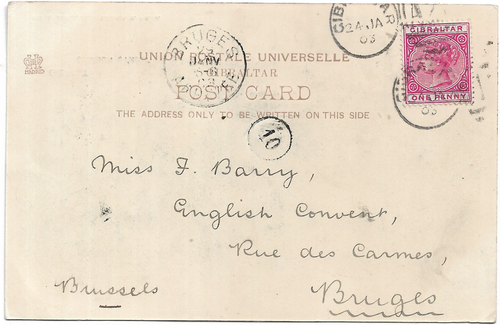 GIBRALTAR
24 JA
03
GIBRALTAR
ONE PENNY
UNION POSTALE UNIVERSELLE
GIBRALTAR
POST CARD
THE ADDRESS ONLY TO BE WRITTEN ON THIS SIDE
BRUGES
10
Miss F. Barry,
English Convent,
Rue des Carmes,
Brussels
Bruges